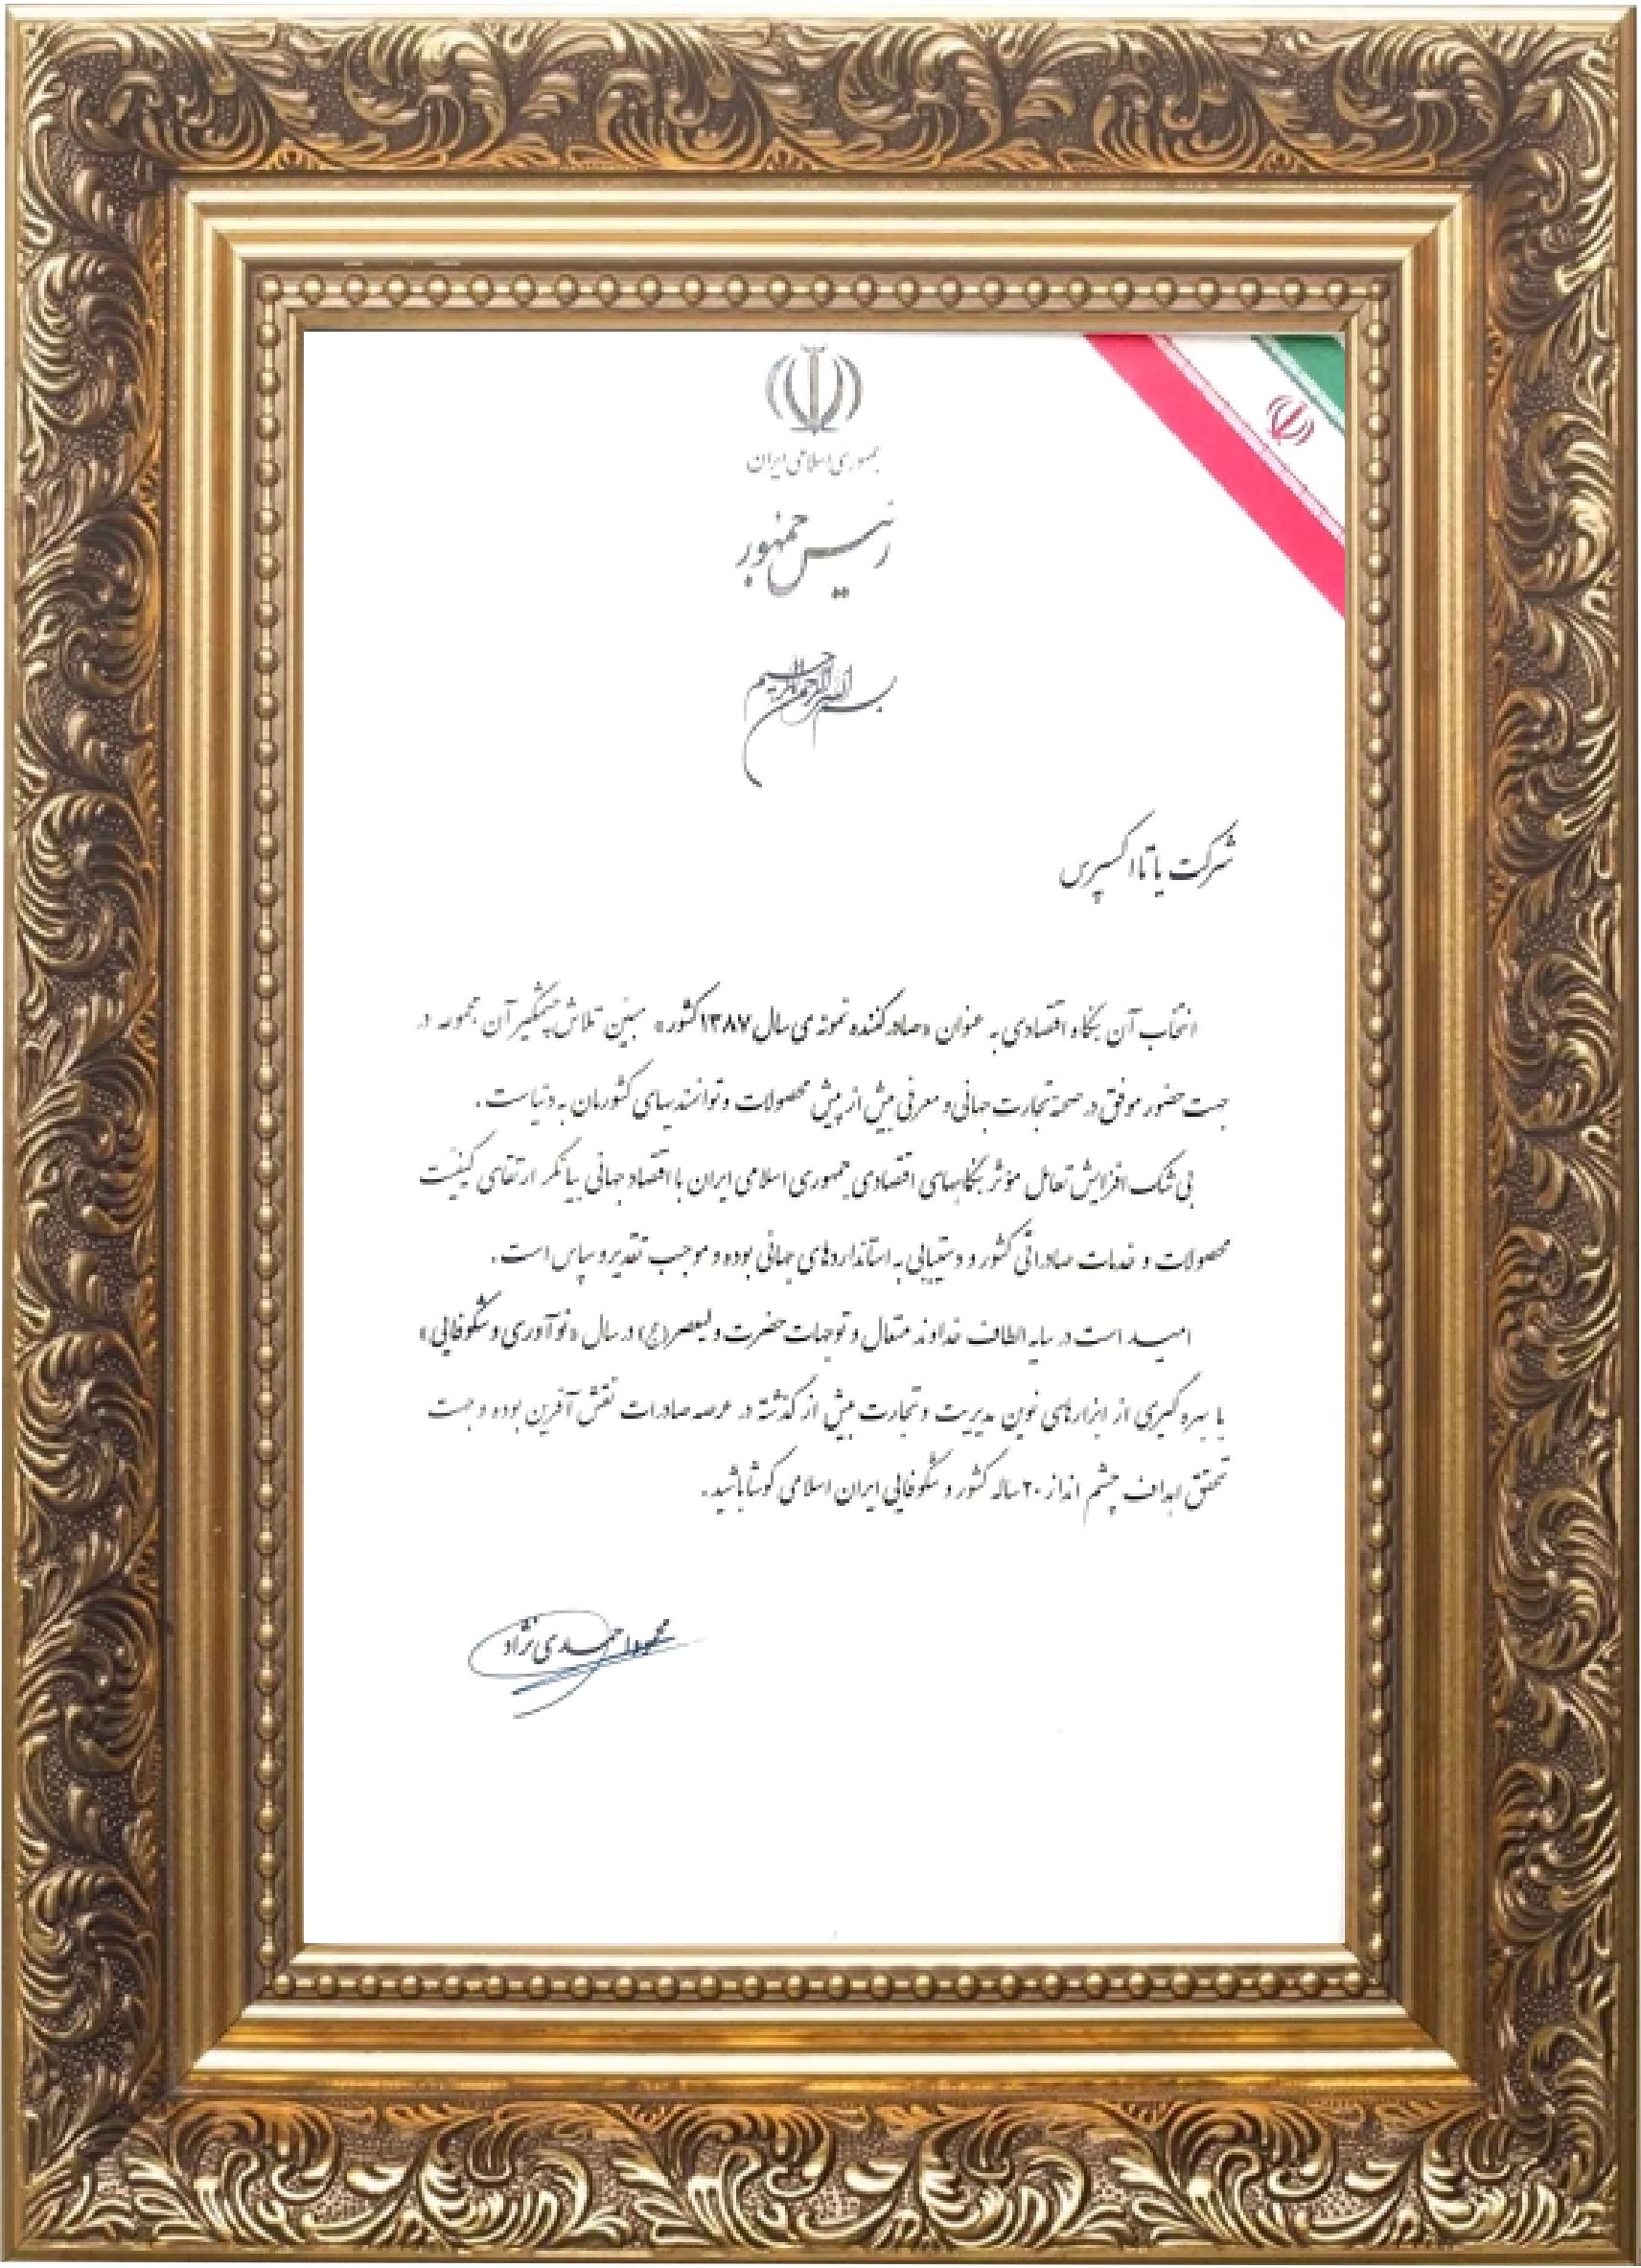 جمهوری اسلامی ایران
رئیس جمهور
بسم الله الرحمن الرحیم
شرکت یاتا اکسپرس
انتخاب آن بنگاه اقتصادی به عنوان «صادرکننده نمونه ی سال ۱۳۸۷ کشور» مبین تلاش چشمگیر آن مجموعه در
جهت حضور موفق در صحنه تجارت جهانی و معرفی بیش از پیش محصولات و توانمندیهای کشورمان به دنیاست.
بی شک افزایش تعامل مؤثر بنگاههای اقتصادی جمهوری اسلامی ایران با اقتصاد جهانی بیانگر ارتقای کیفیت
محصولات و خدمات صادراتی کشور و دستیابی به استانداردهای جهانی بوده و موجب تقدیر و سپاس است.
امید است در سایه الطاف خداوند متعال و توجهات حضرت ولیعصر(عج) در سال «نوآوری و شکوفائی»
با بهره گیری از ابزارهای نوین مدیریت و تجارت بیش از گذشته در عرصه صادرات نقش آفرین بوده و جهت
تحقق اهداف چشم انداز ۲۰ ساله کشور و شکوفائی ایران اسلامی کوشا باشید.
محمود احمدی نژاد